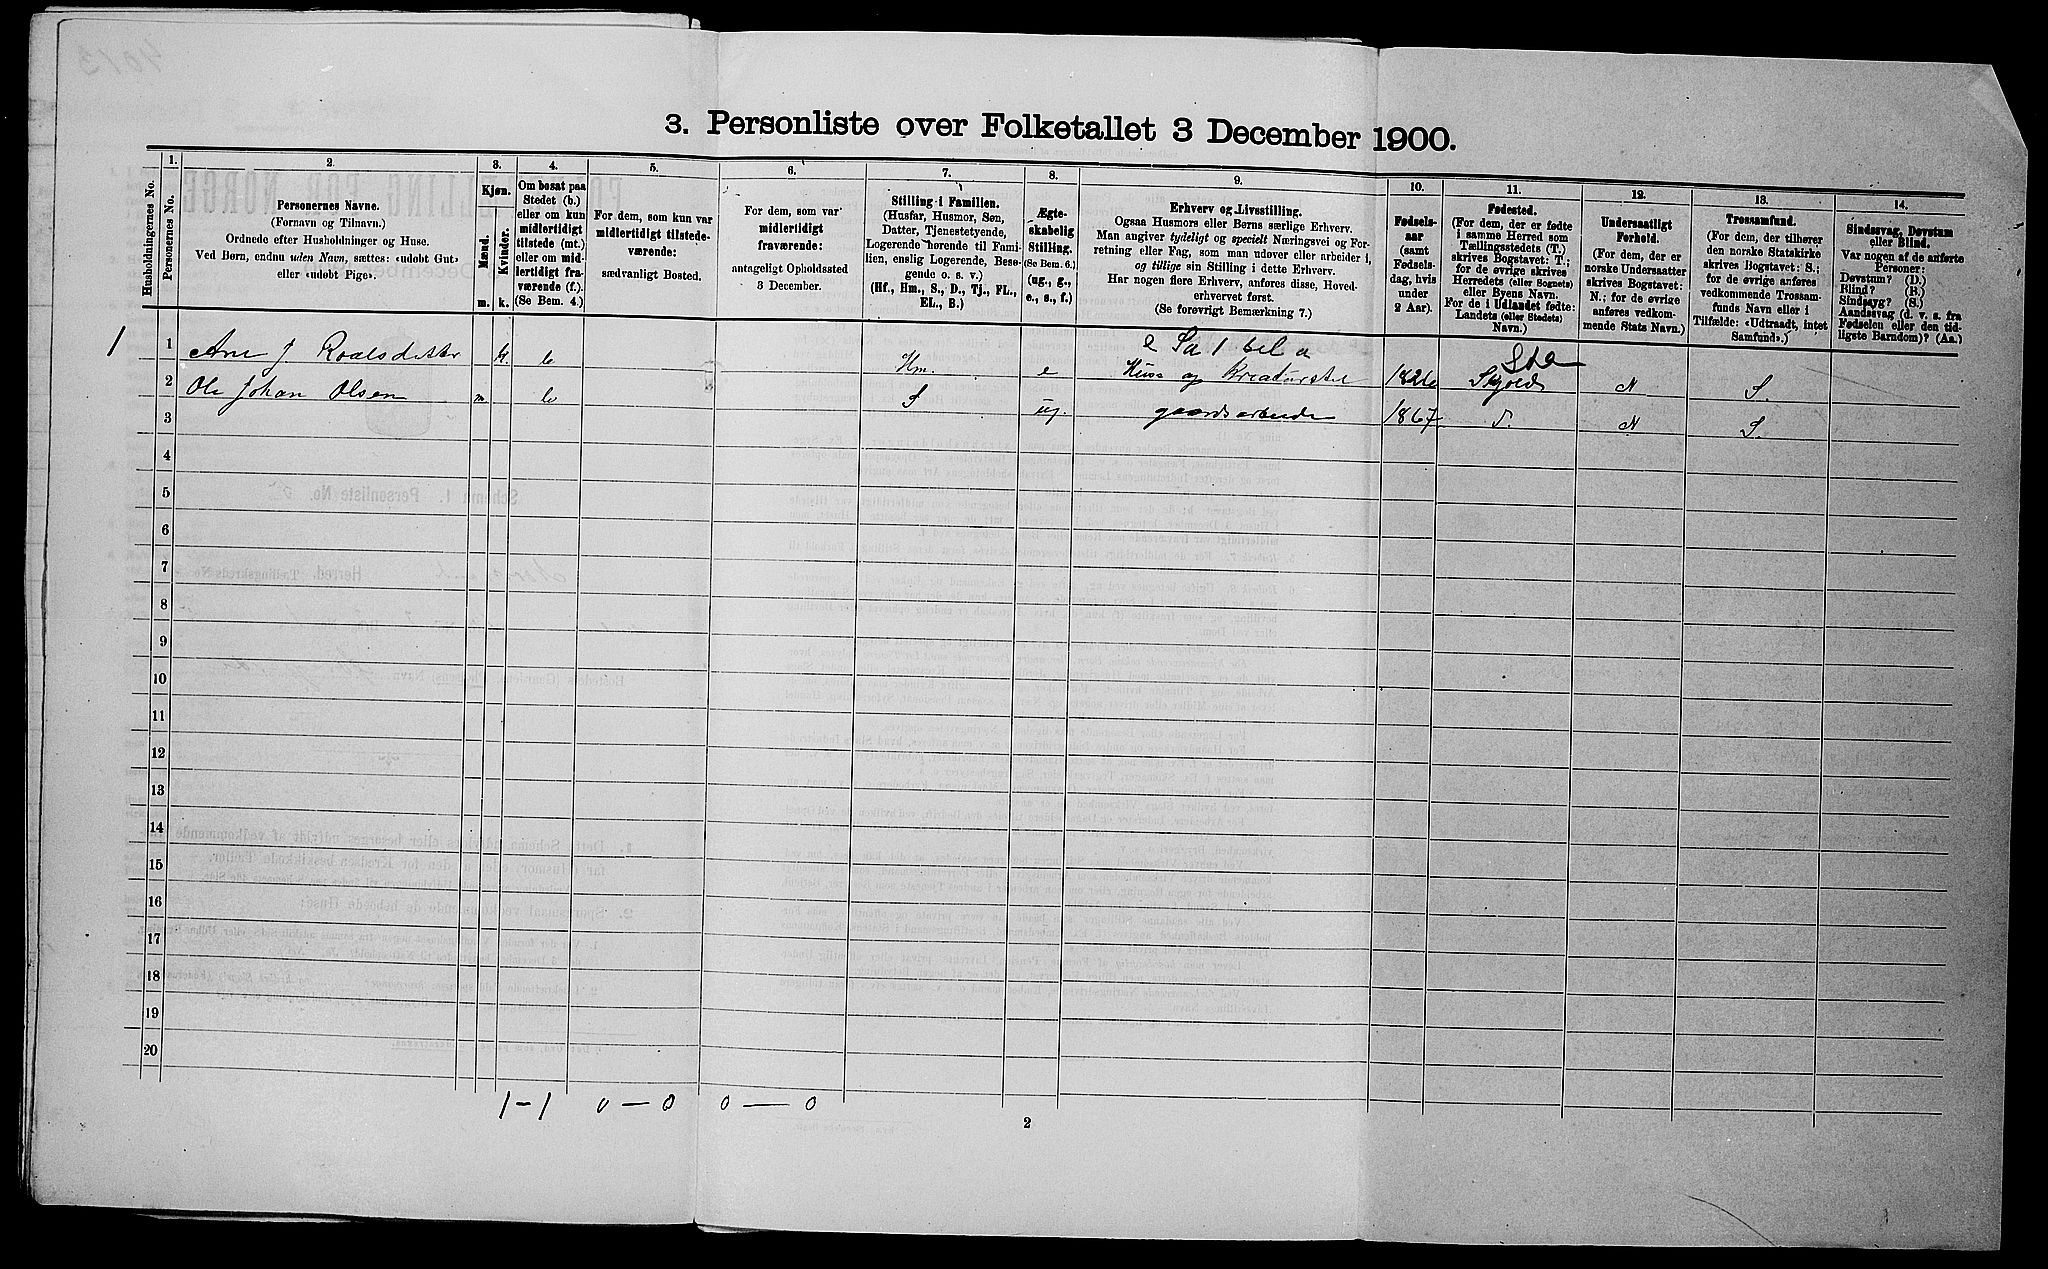 3. Personliste over Folketallet 3 December 1900.
Husholdningernes No.
1.
Personernes No.
2.
Personernes Navne.
(Fornavn og Tilnavn.)
Ordnede efter Husholdninger og Huse.
Ved Børn, endnu uden Navn, sættes: «udøbt Gut»
eller «udøbt Pige».
3.
Kjøn.
Mænd.
Kvinder.
m.
k.
4.
Om bosat paa
Stedet (b.)
eller om kun
midlertidigt
tilstede (mt.)
eller om mid-
lertidigt fra-
værende (f.).
(Se Bem. 4.)
5.
For dem, som kun var
midlertidigt tilstede-
værende:
sædvanligt Bosted.
6.
For dem, som var
midlertidigt
fraværende:
antageligt Opholdssted
3 December.
7.
Stilling i Familien.
(Husfar, Husmor, Søn,
Datter, Tjenestetyende,
Logerende hørende til Fami-
lien, enslig Logerende, Besø-
gende o. s. v.)
(Hf., Hm., S., D., Tj., FL.,
EL., B.)
8.
Ægte-
skabelig
Stilling.
(Se Bem. 6.)
(ug., g.,
e., s., f.)
9.
Erhverv og Livsstilling.
Ogsaa Husmors eller Børns særlige Erhverv.
Man angiver tydeligt og specielt Næringsvei og For-
retning eller Fag, som man udøver eller arbeider i,
og tillige sin Stilling i dette Erhverv.
Har nogen flere Erhverv, anføres disse, Hoved-
erhvervet først.
(Se forøvrigt Bemærkning 7.)
10.
Fødsels-
aar
(samt
Fødsels-
dag, hvis
under
2 Aar).
11.
Fødested.
(For dem, der er fødte
i samme Herred som
Tællingsstedets (T.)
skrives Bogstavet: T.;
for de øvrige skrives
Herredets (eller Sognets)
eller Byens Navn.
For de i Udlandet fødte:
Landets (eller Stedets)
Navn.)
12.
Undersaatligt
Forhold.
(For dem, der er
norske Undersaatter
skrives Bogstavet:
N.; for de øvrige
anføres vedkom-
mende Stats Navn.)
13.
Trossamfund.
(For dem, der tilhører
den norske Statskirke
skrives Bogstavet: S.;
for de øvrige anføres
vedkommende Trossam-
funds Navn eller i
Tilfælde: «Udtraadt, intet
Samfund».)
14.
Sindssvag, Døvstum
eller Blind.
Var nogen af de anførte
Personer:
Døvstum? (D.)
Blind? (B.)
Sindssyg? (S.)
Aandssvag (d. v. s. fra
Fødselen eller den tid-
ligste Barndom)? (Aa.)
1 1 k. b Hm. e Huss og Kreaturstel 1826 Skjold N S.
2 Ole Johan Olsen m b S ug. gaardsarbeide 1867 T. N S.
3
4
5
6
7
8
9
10
11
12
13
14
15
16
17
18
19
20
1-1 0-0 0-0
2